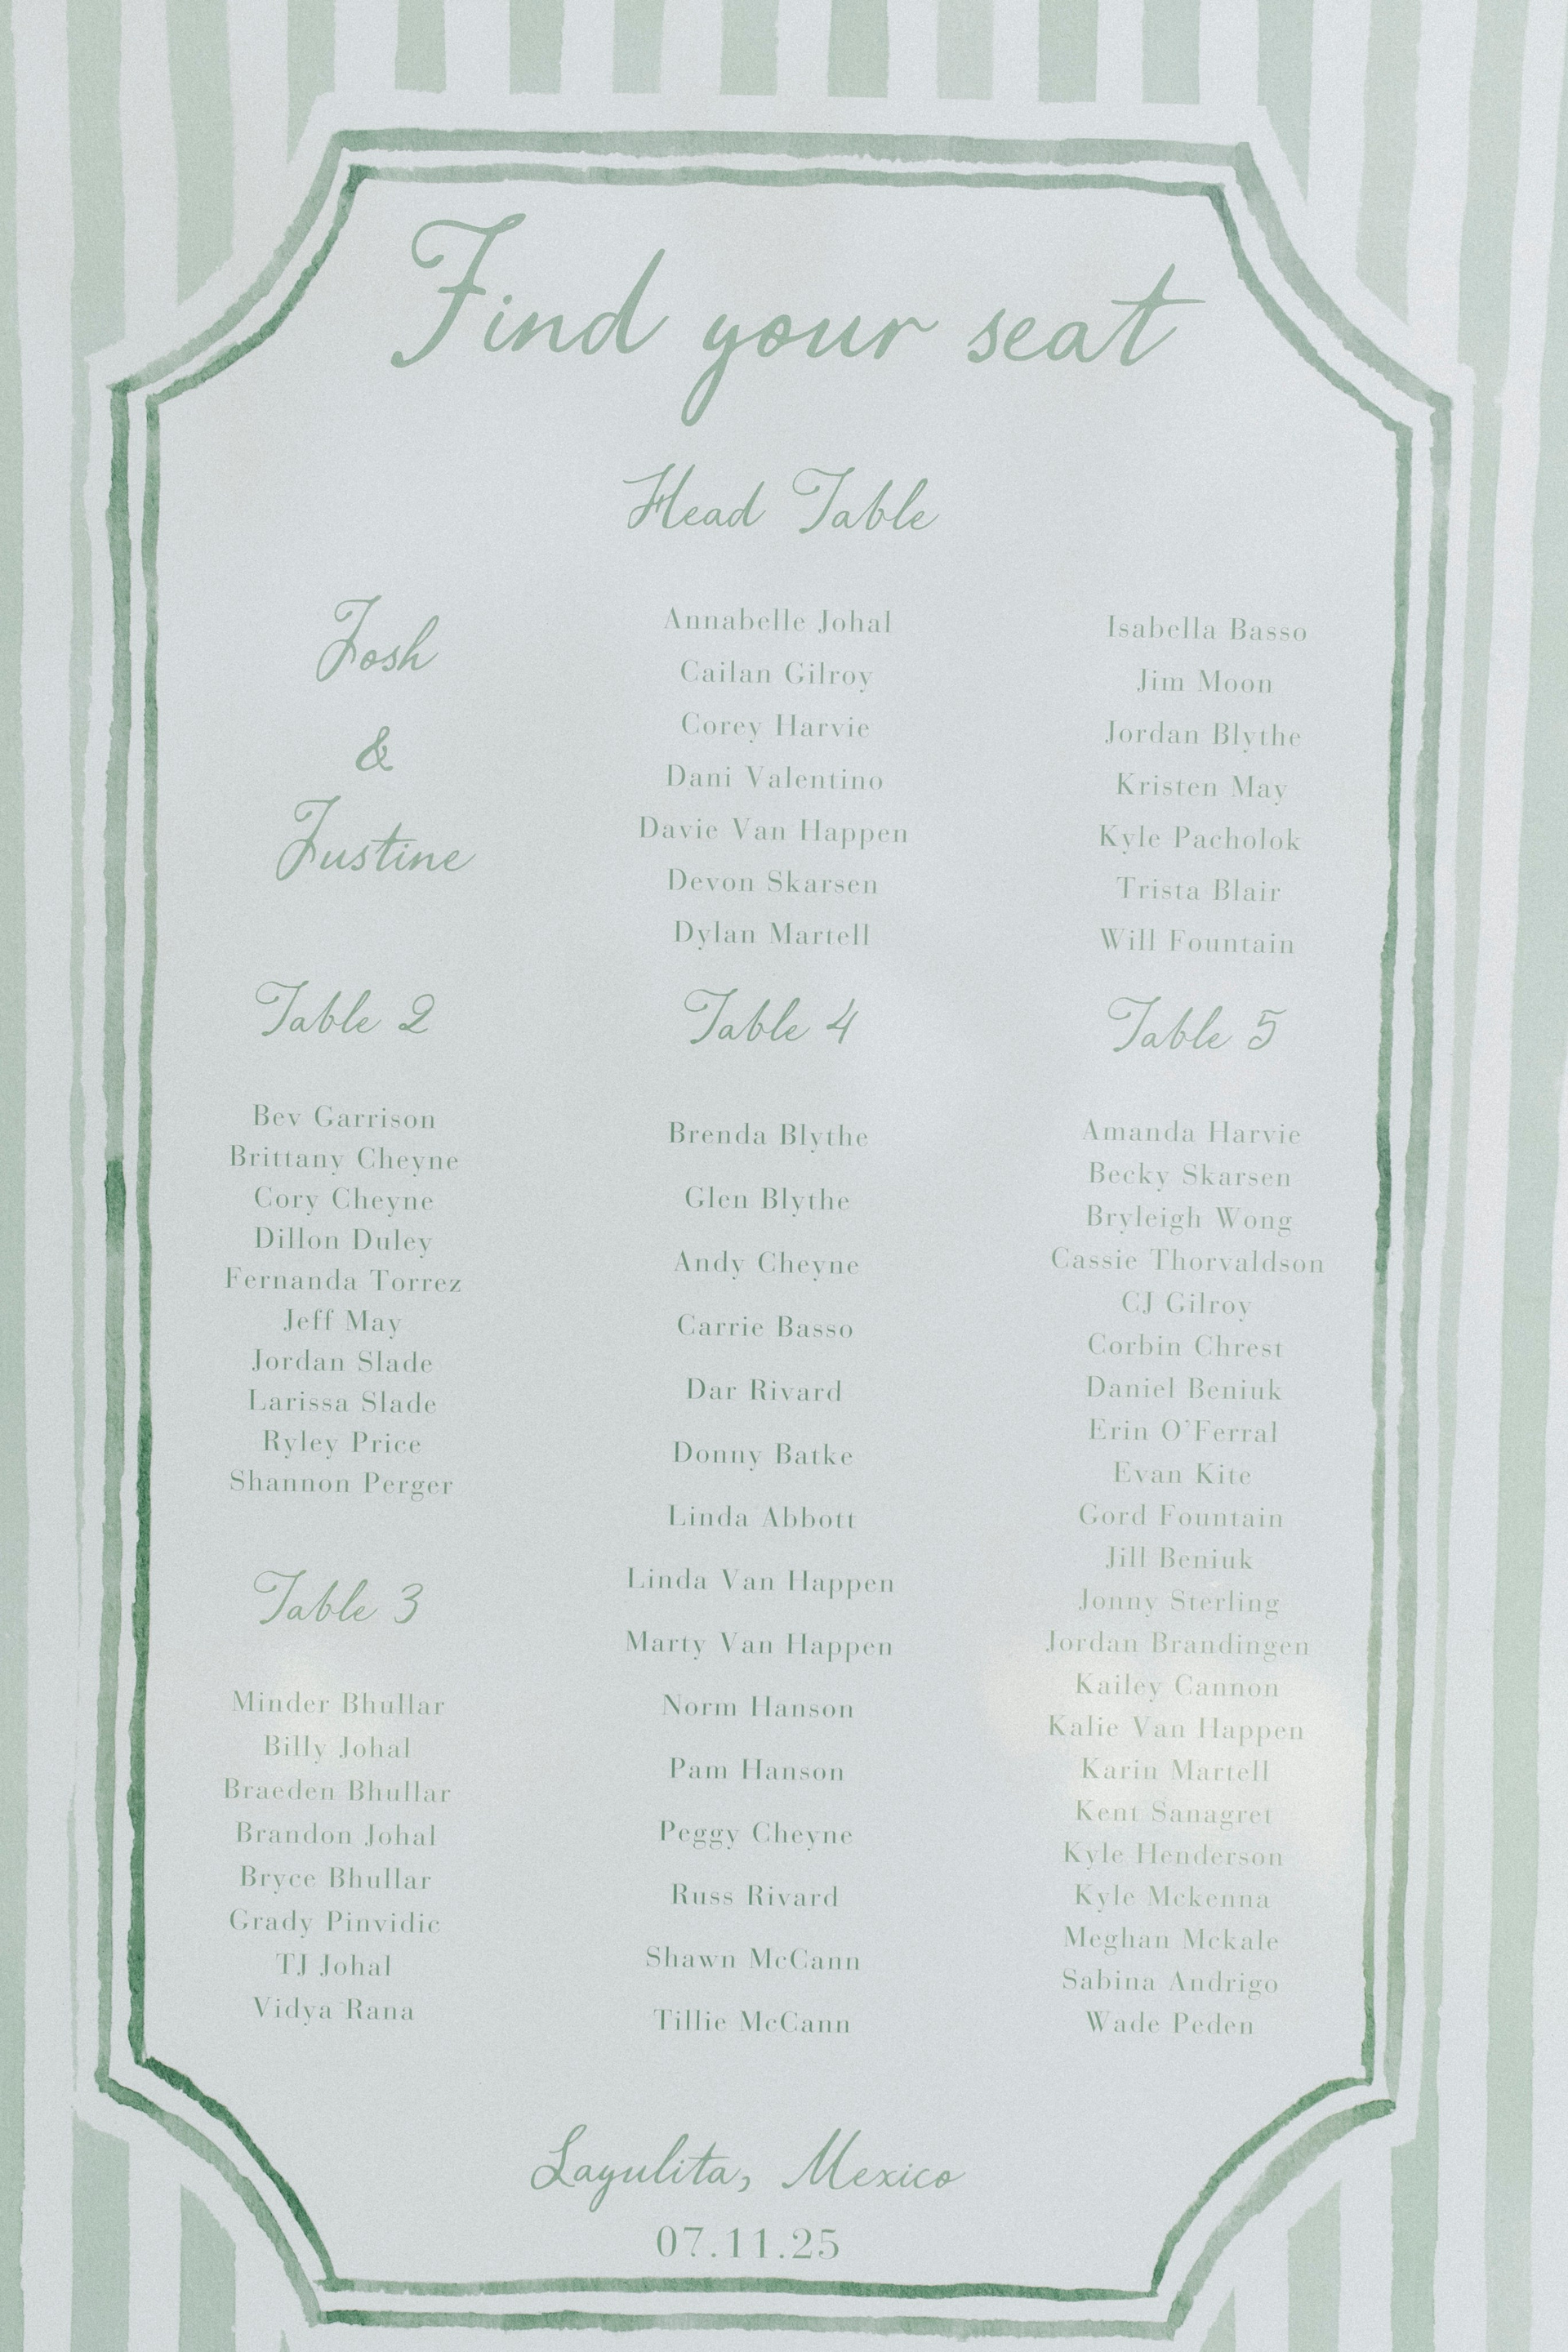 Find your seat
Head Table
Josh
&
Justine
Annabelle Johal
Cailan Gilroy
Corey Harvie
Dani Valentino
Davie Van Happen
Devon Skarsen
Dylan Martell
Isabella Basso
Jim Moon
Jordan Blythe
Kristen May
Kyle Pacholok
Trista Blair
Will Fountain
Table 2
Bev Garrison
Brittany Cheyne
Cory Cheyne
Dillon Duley
Fernanda Torrez
Jeff May
Jordan Slade
Larissa Slade
Ryley Price
Shannon Perger
Table 3
Minder Bhullar
Billy Johal
Braeden Bhullar
Brandon Johal
Bryce Bhullar
Grady Pinvidic
TJ Johal
Vidya Rana
Table 4
Brenda Blythe
Glen Blythe
Andy Cheyne
Carrie Basso
Dar Rivard
Donny Batke
Linda Abbott
Linda Van Happen
Marty Van Happen
Norm Hanson
Pam Hanson
Peggy Cheyne
Russ Rivard
Shawn McCann
Tillie McCann
Table 5
Amanda Harvie
Becky Skarsen
Bryleigh Wong
Cassie Thorvaldson
CJ Gilroy
Corbin Chrest
Daniel Beniuk
Erin O'Ferral
Evan Kite
Gord Fountain
Jill Beniuk
Jonny Sterling
Jordan Brandingen
Kailey Cannon
Kalie Van Happen
Karin Martell
Kent Sanagret
Kyle Henderson
Kyle Mckenna
Meghan Mckale
Sabina Andrigo
Wade Peden
Sayulita, Mexico
07.11.25